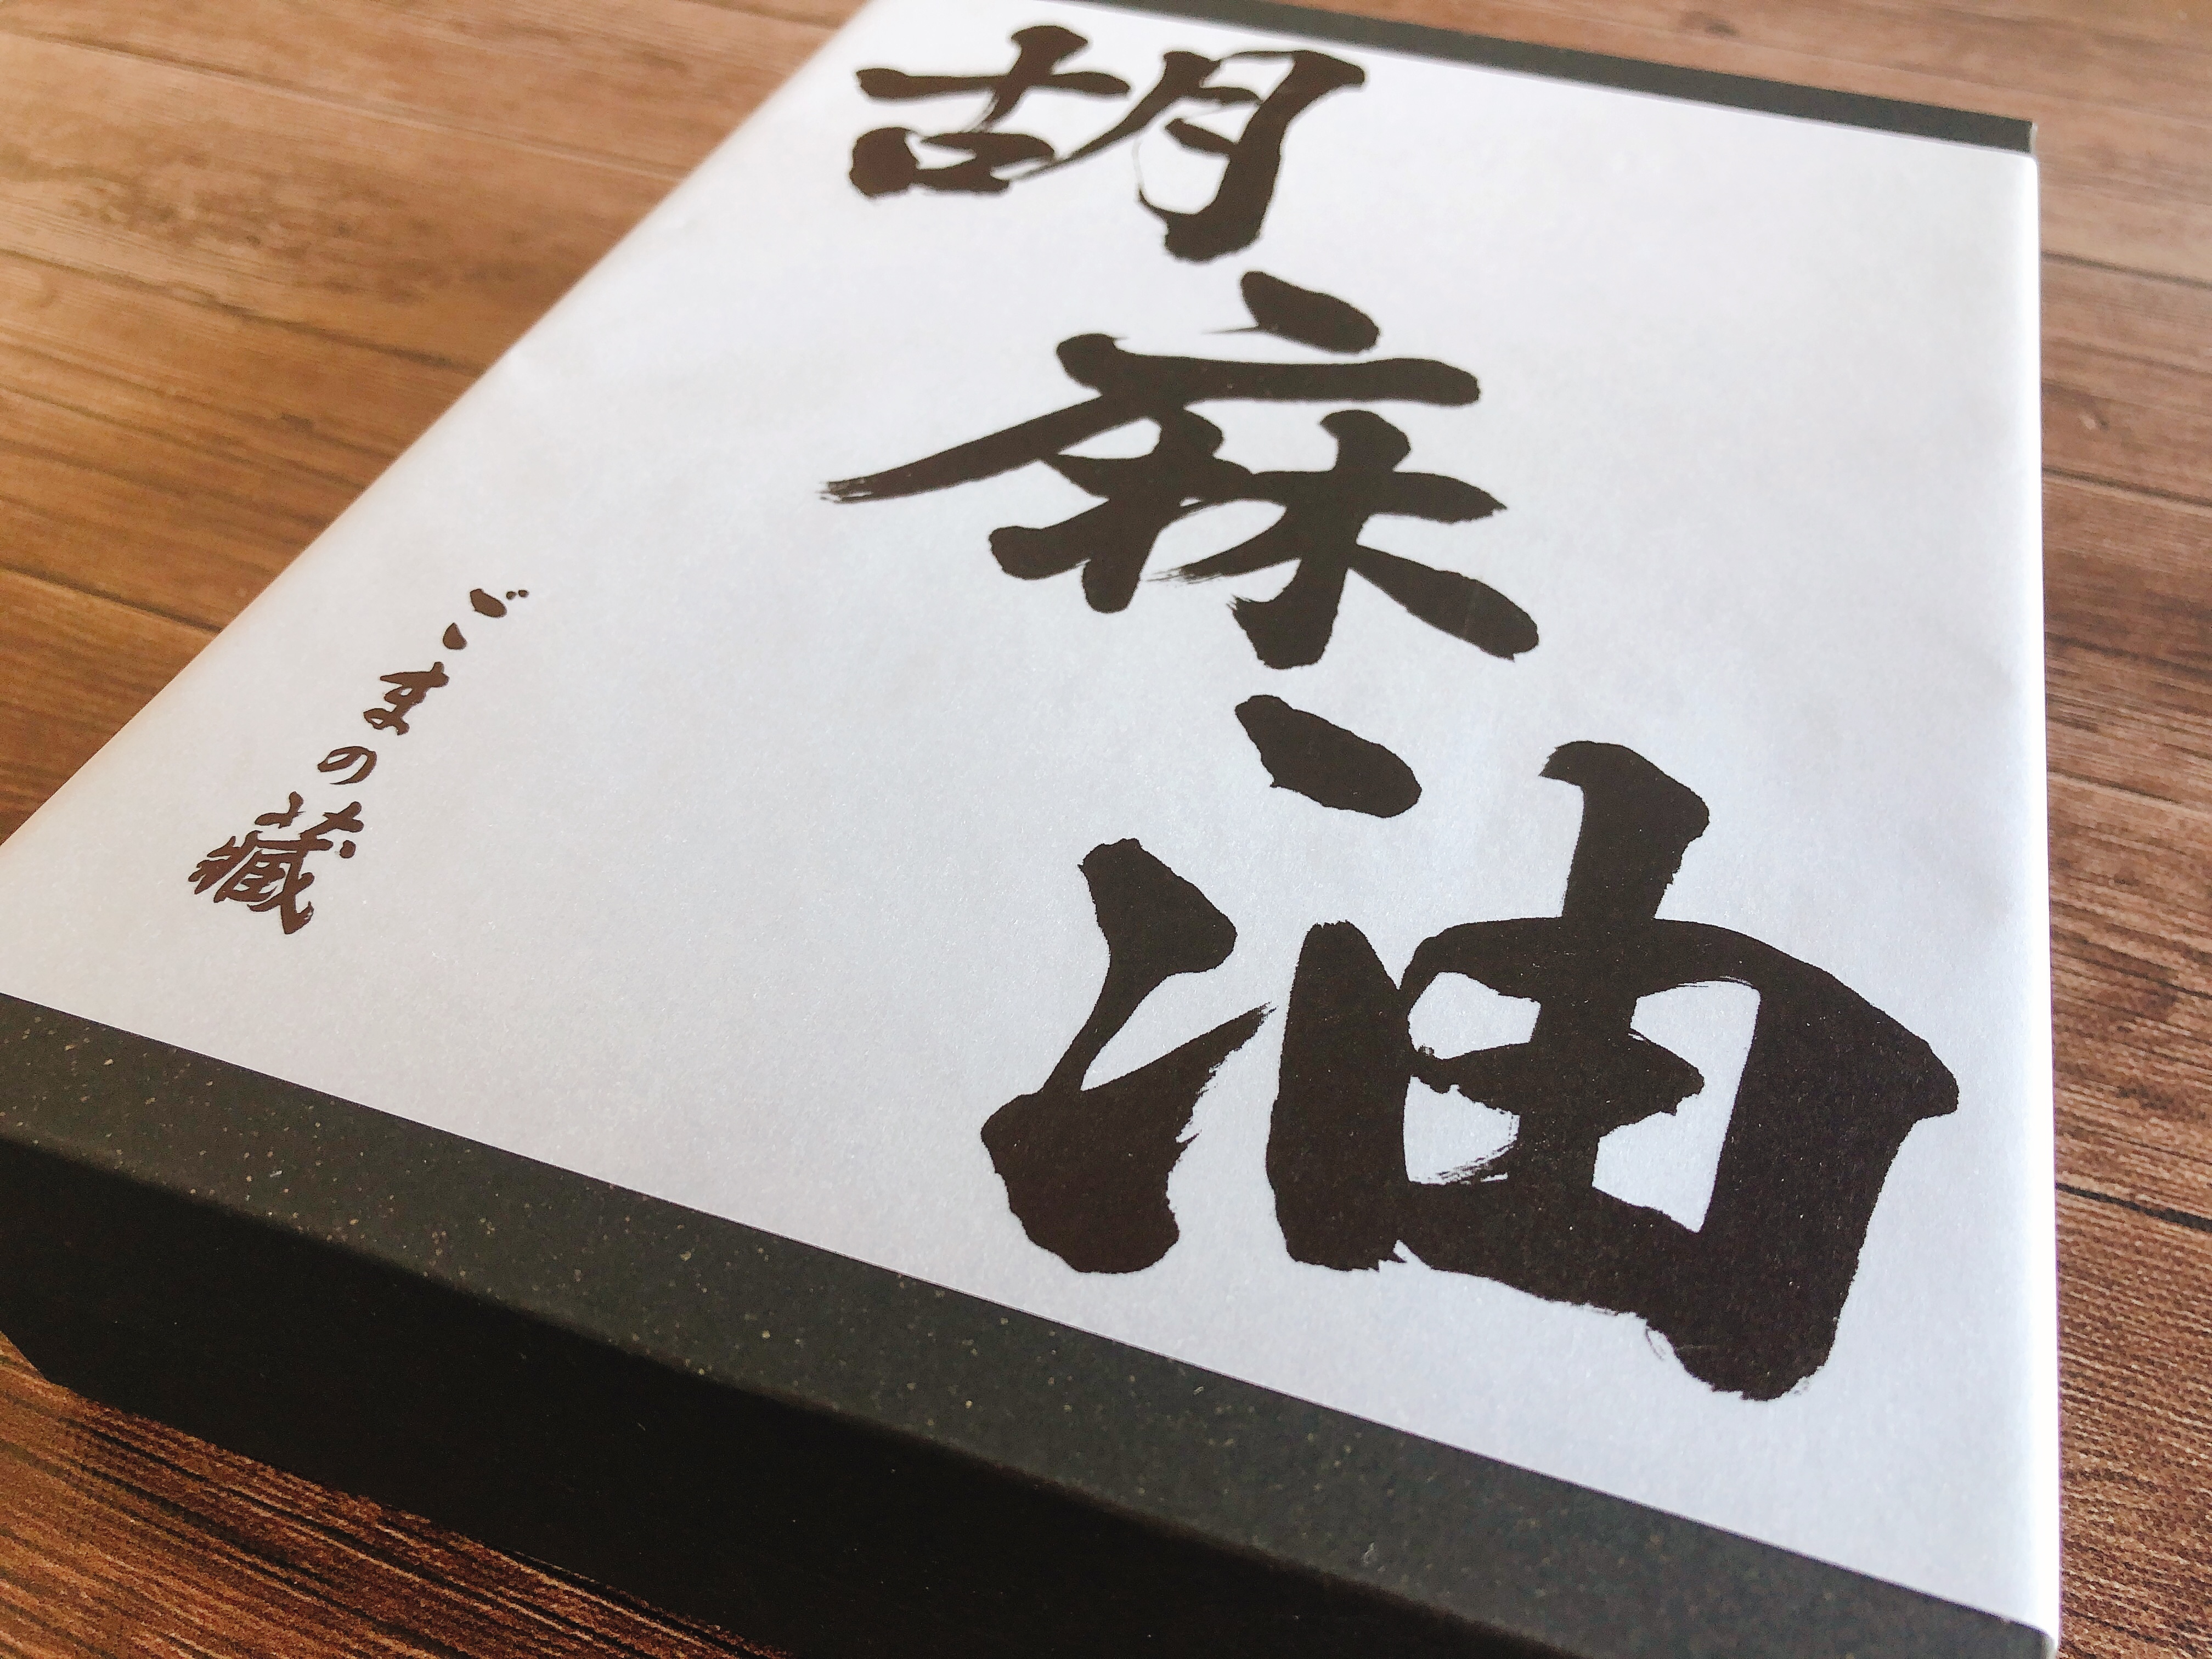 胡麻油
ごまの蔵